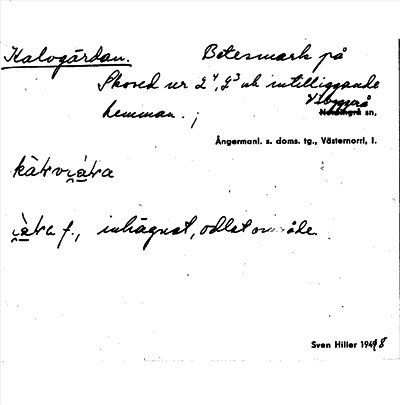 Kalvgärdan. Betesmark på
Skoved nr 2⁴, 2³ och intilliggande
hemman. ; Vibyggerå
Nordingrå sn,
Ångermanl. s. doms. tg., Västernorrl. l.
f., inhägnat, odlat område.
Sven Hiller 1948